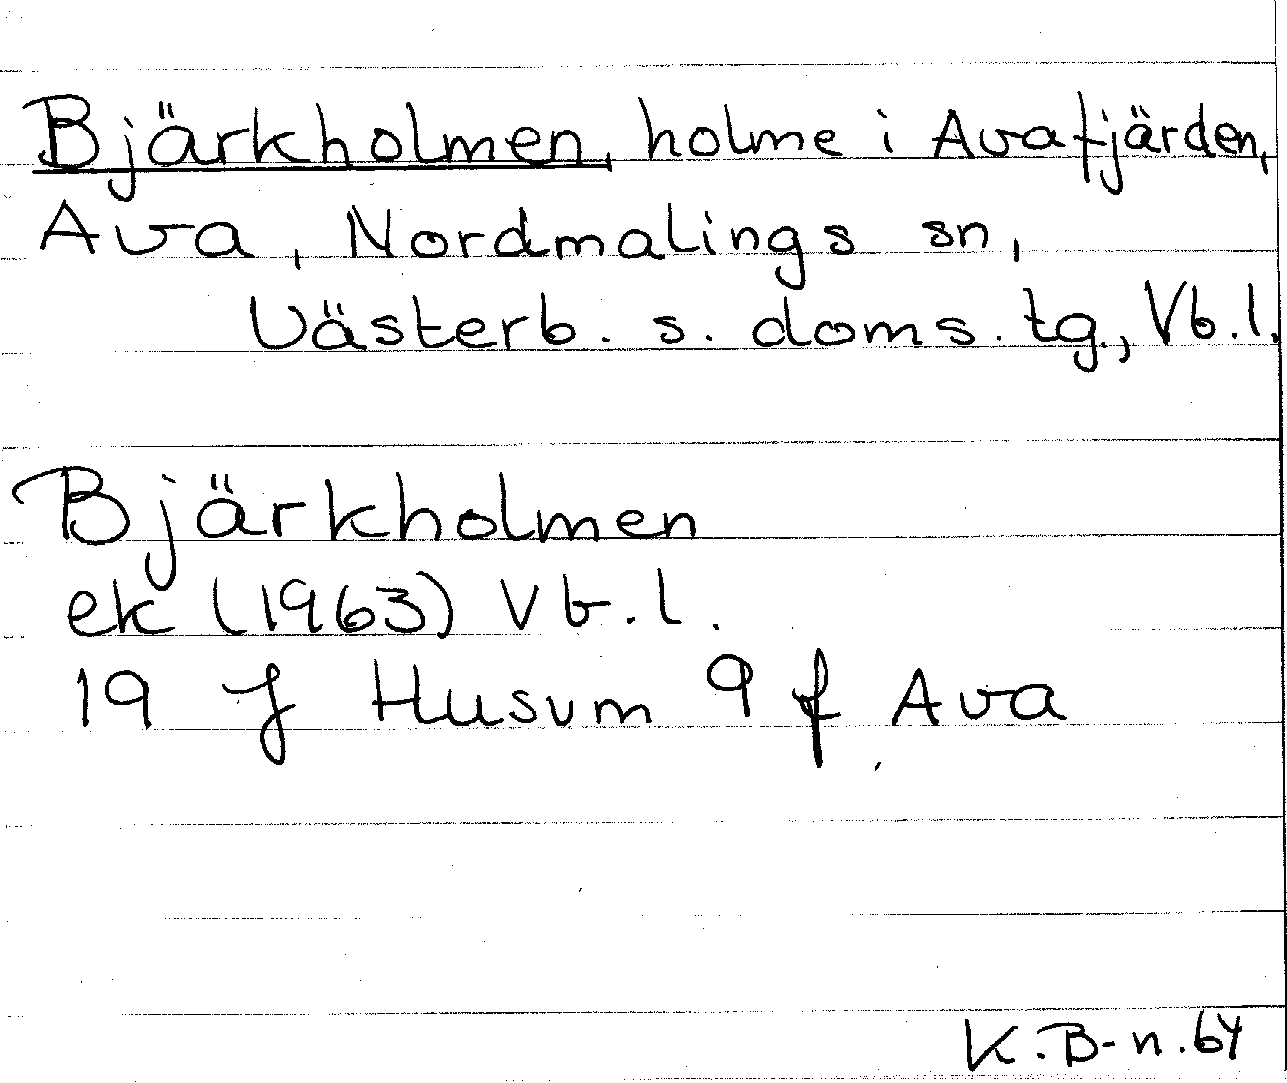 Bjärkholmen, holme i Avafjärden,
Ava, Nordmalings sn,
Västerb. s. doms. tg., Vb.l.
Bjärkholmen
ek (1963) Vb.l.
19 J Husum 9 f Ava
K.B-n.64